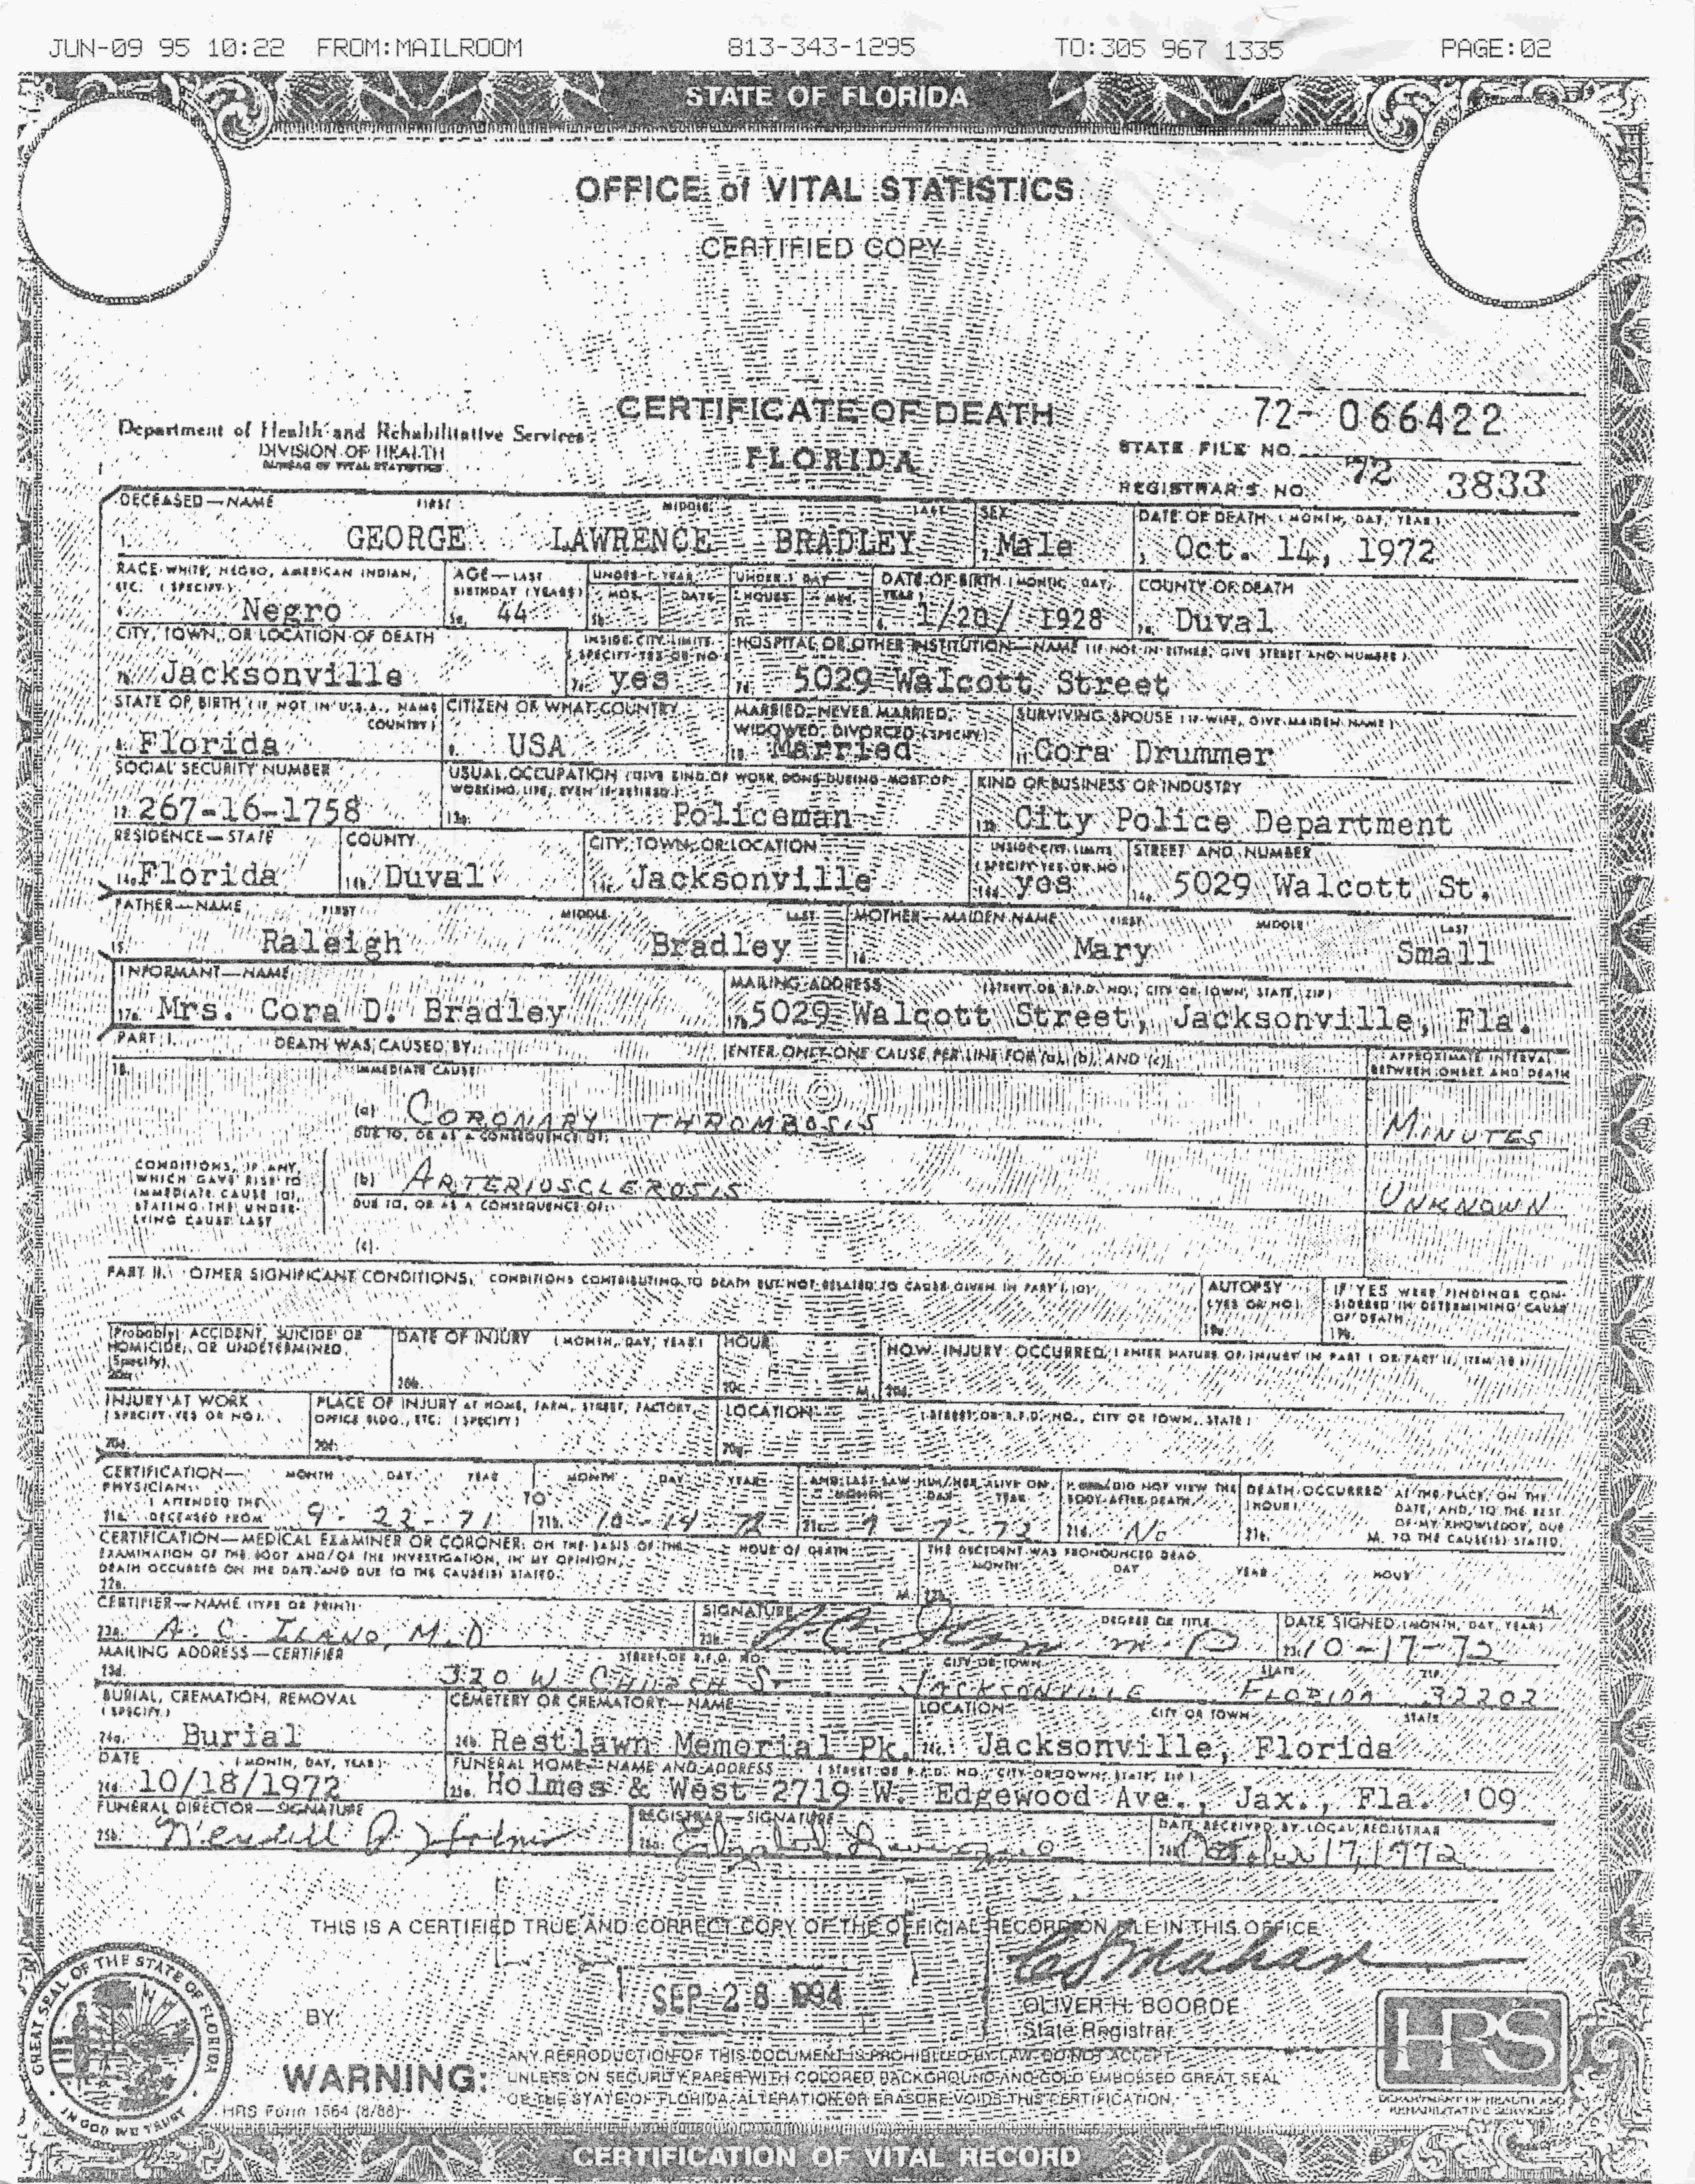 JUN-09 95 10:22 FROM:MAILROOM 813-343-1295 TO:305 967 1335 PAGE:02
STATE OF FLORIDA
OFFICE of VITAL STATISTICS
CERTIFIED COPY
CERTIFICATE OF DEATH
FLORIDA
72- 066422
Department of Health and Rehabilitative Services
DIVISION OF HEALTH
BUREAU OF VITAL STATISTICS
STATE FILE NO.
REGISTRAR'S NO. 72 3833
DECEASED—NAME FIRST MIDDLE LAST SEX DATE OF DEATH (MONTH, DAY, YEAR)
1. GEORGE LAWRENCE BRADLEY 2. Male 3. Oct. 14, 1972
RACE WHITE, NEGRO, AMERICAN INDIAN, ETC. (SPECIFY) AGE—LAST BIRTHDAY (YEARS) UNDER 1 YEAR MOS. DAYS UNDER 1 DAY HOURS MIN. DATE OF BIRTH (MONTH, DAY, YEAR) COUNTY OF DEATH
4. Negro 5a. 44 5b. 5c. 6. 1/20/ 1928 7a. Duval
CITY, TOWN, OR LOCATION OF DEATH INSIDE CITY LIMITS (SPECIFY YES OR NO) HOSPITAL OR OTHER INSTITUTION—NAME (IF NOT IN EITHER, GIVE STREET AND NUMBER)
7b. Jacksonville 7c. yes 7d. 5029 Walcott Street
STATE OF BIRTH (IF NOT IN U.S.A., NAME COUNTRY) CITIZEN OF WHAT COUNTRY MARRIED, NEVER MARRIED, WIDOWED, DIVORCED (SPECIFY) SURVIVING SPOUSE (IF WIFE, GIVE MAIDEN NAME)
8. Florida 9. USA 10. Married 11. Cora Drummer
SOCIAL SECURITY NUMBER USUAL OCCUPATION (GIVE KIND OF WORK DONE DURING MOST OF WORKING LIFE, EVEN IF RETIRED) KIND OF BUSINESS OR INDUSTRY
12. 267-16-1758 13a. Policeman 13b. City Police Department
RESIDENCE—STATE COUNTY CITY, TOWN, OR LOCATION INSIDE CITY LIMITS (SPECIFY YES OR NO) STREET AND NUMBER
14a. Florida 14b. Duval 14c. Jacksonville 14d. yes 14e. 5029 Walcott St.
FATHER—NAME FIRST MIDDLE LAST MOTHER—MAIDEN NAME FIRST MIDDLE LAST
15. Raleigh Bradley 16. Mary Small
INFORMANT—NAME MAILING ADDRESS (STREET OR R.F.D. NO., CITY OR TOWN, STATE, ZIP)
17a. Mrs. Cora D. Bradley 17b. 5029 Walcott Street, Jacksonville, Fla.
PART I. DEATH WAS CAUSED BY: [ENTER ONLY ONE CAUSE PER LINE FOR (a), (b), AND (c)] APPROXIMATE INTERVAL BETWEEN ONSET AND DEATH
18. IMMEDIATE CAUSE
(a) CORONARY THROMBOSIS MINUTES
DUE TO, OR AS A CONSEQUENCE OF:
CONDITIONS, IF ANY, WHICH GAVE RISE TO IMMEDIATE CAUSE (a), STATING THE UNDERLYING CAUSE LAST
(b) ARTERIOSCLEROSIS UNKNOWN
DUE TO, OR AS A CONSEQUENCE OF:
(c)
PART II. OTHER SIGNIFICANT CONDITIONS, CONDITIONS CONTRIBUTING TO DEATH BUT NOT RELATED TO CAUSE GIVEN IN PART I (a) AUTOPSY (YES OR NO) 19a. IF YES WERE FINDINGS CONSIDERED IN DETERMINING CAUSE OF DEATH 19b.
(Probably) ACCIDENT, SUICIDE OR HOMICIDE, OR UNDETERMINED (Specify) 20a. DATE OF INJURY (MONTH, DAY, YEAR) 20b. HOUR 20c. M. HOW INJURY OCCURRED (ENTER NATURE OF INJURY IN PART I OR PART II, ITEM 18) 20d.
INJURY AT WORK (SPECIFY YES OR NO) PLACE OF INJURY AT HOME, FARM, STREET, FACTORY, OFFICE BLDG., ETC. (SPECIFY) LOCATION (STREET OR R.F.D. NO., CITY OR TOWN, STATE)
20e. 20f. 20g.
CERTIFICATION— PHYSICIAN: I ATTENDED THE DECEASED FROM MONTH DAY YEAR TO MONTH DAY YEAR AND LAST SAW HIM/HER ALIVE ON MONTH DAY YEAR I DID/DID NOT VIEW THE BODY AFTER DEATH. DEATH OCCURRED (HOUR) AT THE PLACE, ON THE DATE, AND, TO THE BEST OF MY KNOWLEDGE, DUE TO THE CAUSE(S) STATED.
21a. 9-22-71 21b. 10-14-72 21c. 9-7-72 21d. No 21e. M.
CERTIFICATION—MEDICAL EXAMINER OR CORONER: ON THE BASIS OF THE EXAMINATION OF THE BODY AND/OR THE INVESTIGATION, IN MY OPINION, DEATH OCCURRED ON THE DATE AND DUE TO THE CAUSE(S) STATED. HOUR OF DEATH THE DECEDENT WAS PRONOUNCED DEAD MONTH DAY YEAR HOUR
22a. M. 22b. M.
CERTIFIER—NAME (TYPE OR PRINT) SIGNATURE DEGREE OR TITLE DATE SIGNED (MONTH, DAY, YEAR)
23a. A. C. ILANO, M.D 23b. M.D 23c. 10-17-72
MAILING ADDRESS—CERTIFIER STREET OR R.F.D. NO. CITY OR TOWN STATE ZIP
23d. 320 W. CHURCH ST JACKSONVILLE FLORIDA 32202
BURIAL, CREMATION, REMOVAL (SPECIFY) CEMETERY OR CREMATORY—NAME LOCATION CITY OR TOWN STATE
24a. Burial 24b. Restlawn Memorial Pk. 24c. Jacksonville, Florida
DATE (MONTH, DAY, YEAR) FUNERAL HOME—NAME AND ADDRESS (STREET OR R.F.D. NO., CITY OR TOWN, STATE, ZIP)
24d. 10/18/1972 25a. Holmes & West 2719 W. Edgewood Ave., Jax., Fla. '09
FUNERAL DIRECTOR—SIGNATURE REGISTRAR—SIGNATURE DATE RECEIVED BY LOCAL REGISTRAR
25b. 26a. 26b. October 17, 1972
THIS IS A CERTIFIED TRUE AND CORRECT COPY OF THE OFFICIAL RECORD ON FILE IN THIS OFFICE
SEP 28 1994
BY:
OLIVER H. BOORDE
State Registrar
WARNING: ANY REPRODUCTION OF THIS DOCUMENT IS PROHIBITED BY LAW. DO NOT ACCEPT
UNLESS ON SECURITY PAPER WITH COLORED BACKGROUND AND GOLD EMBOSSED GREAT SEAL
OF THE STATE OF FLORIDA. ALTERATION OR ERASURE VOIDS THIS CERTIFICATION.
HRS Form 1564 (8/88)
GREAT SEAL OF THE STATE OF FLORIDA
IN GOD WE TRUST
HRS
DEPARTMENT OF HEALTH AND
REHABILITATIVE SERVICES
CERTIFICATION OF VITAL RECORD